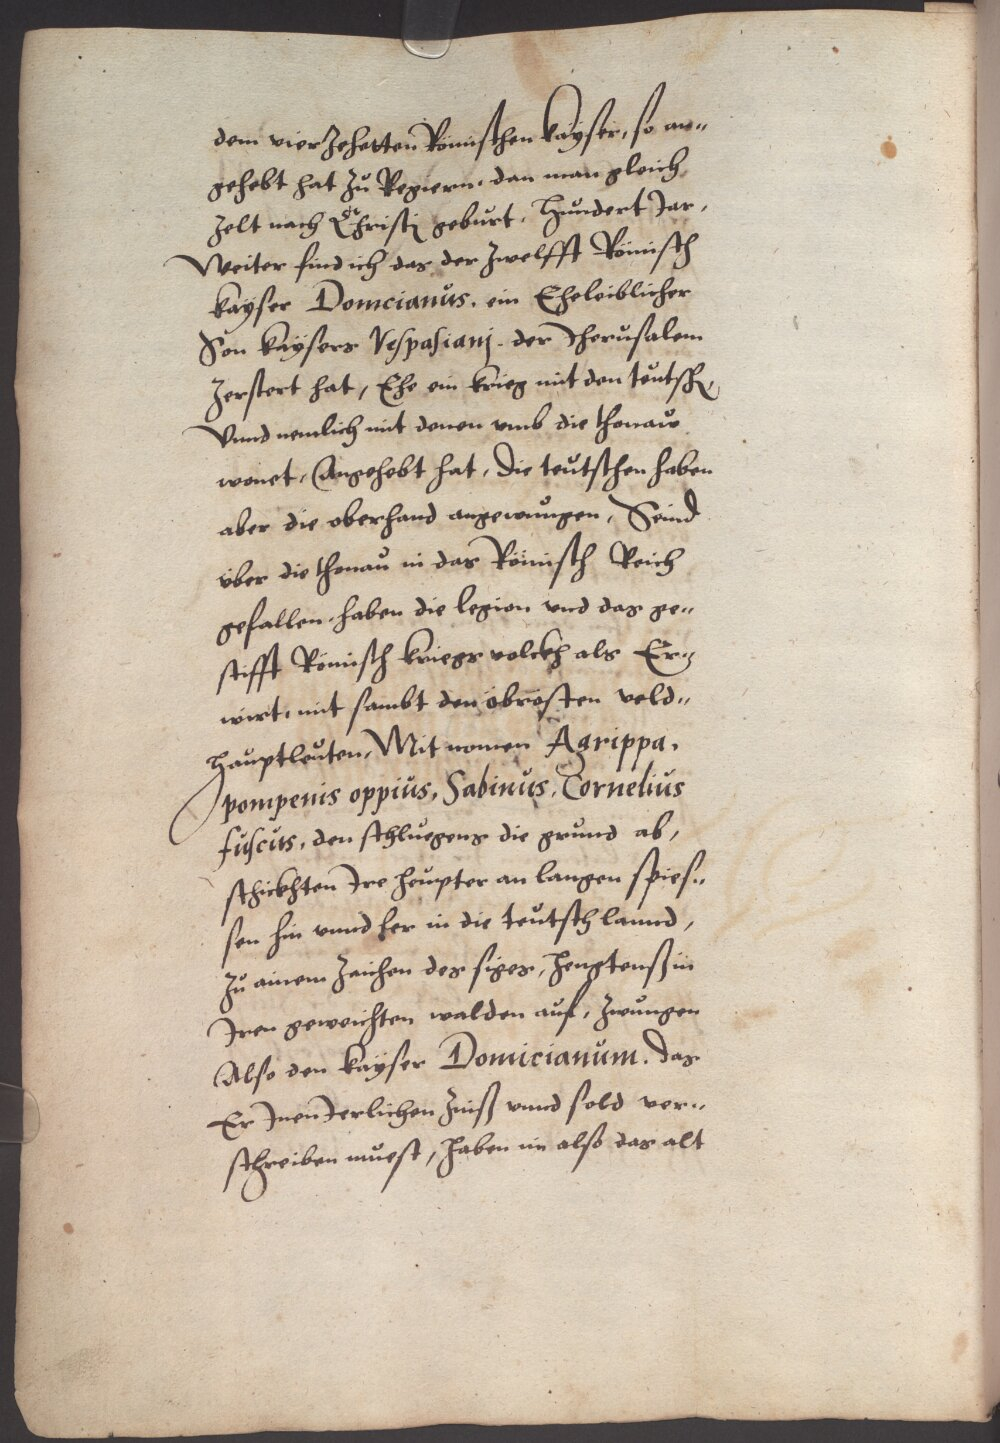 dem vierzehetten Römischen Kaÿser, so an„
gehebt hat Zů Regiern. dan man gleich
Zelt nach Christj gebůrt. Hůndert Jar,
Weiter find ich das der Zwelfft Römisch
kaÿser Domcianůs. ein Eheleiblicher
Son Kaÿsers Vespasianj. der Jherůsalem
Zerstert hat, Ehe ein krieg mit den teůtsch
Vnnd nemlich mit denen vmb die thonaw
wonet, Angehebt hat, die teůtschen haben
aber die oberhand angewůngen, Seind
vber die thonaů in das Römisch Reich
gefallen. haben die legion vnd das ge„
stifft Römisch kriegs volckh als Er„
wirt, mit sambt den öbrosten veld„
haůptleůten, Mit nomen Agrippa,
pompenis oppiůs, Sabinůs, Corneliůs
fůscůs, den schluegens die grund ab,
schickhten Jre heůpter an langen spies„
sen hin vnnd her in die teůtsch lannd,
Zů ainem Zaichen des siges, hengtenß in
Jren geweichten walden auf, Zwůngen
Also den kaÿser Domicianům. das
Er Jnen Jerlichen Zinß vnnd sold ver„
schreiben muest, haben im also das alt